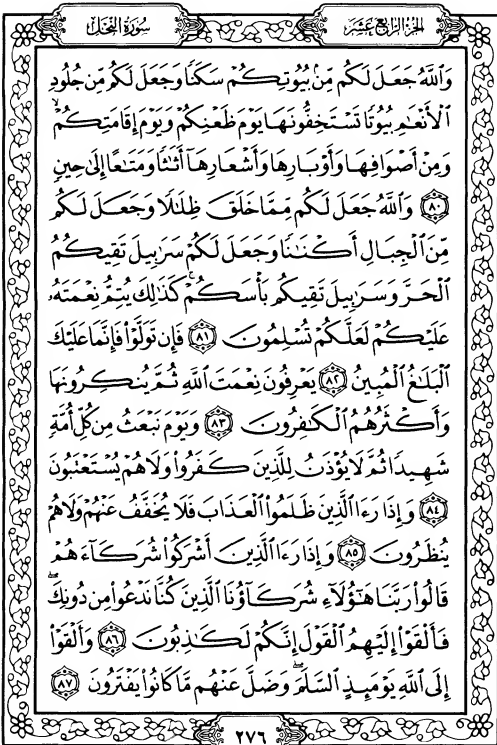 الجزء الرابع عشر
سورة النحل
وَاللَّهُ جَعَلَ لَكُم مِّنۢ بُيُوتِكُمْ سَكَنًا وَجَعَلَ لَكُم مِّن جُلُودِ
ٱلْأَنْعَٰمِ بُيُوتًا تَسْتَخِفُّونَهَا يَوْمَ ظَعْنِكُمْ وَيَوْمَ إِقَامَتِكُمْ ۙ
وَمِنْ أَصْوَافِهَا وَأَوْبَارِهَا وَأَشْعَارِهَآ أَثَٰثًا وَمَتَٰعًا إِلَىٰ حِينٍ
٨٠ وَٱللَّهُ جَعَلَ لَكُم مِّمَّا خَلَقَ ظِلَٰلًا وَجَعَلَ لَكُم
مِّنَ ٱلْجِبَالِ أَكْنَٰنًا وَجَعَلَ لَكُمْ سَرَٰبِيلَ تَقِيكُمُ
ٱلْحَرَّ وَسَرَٰبِيلَ تَقِيكُم بَأْسَكُمْ ۚ كَذَٰلِكَ يُتِمُّ نِعْمَتَهُۥ
عَلَيْكُمْ لَعَلَّكُمْ تُسْلِمُونَ ٨١ فَإِن تَوَلَّوْا۟ فَإِنَّمَا عَلَيْكَ
ٱلْبَلَٰغُ ٱلْمُبِينُ ٨٢ يَعْرِفُونَ نِعْمَتَ ٱللَّهِ ثُمَّ يُنكِرُونَهَا
وَأَكْثَرُهُمُ ٱلْكَٰفِرُونَ ٨٣ وَيَوْمَ نَبْعَثُ مِن كُلِّ أُمَّةٍ
شَهِيدًا ثُمَّ لَا يُؤْذَنُ لِلَّذِينَ كَفَرُوا۟ وَلَا هُمْ يُسْتَعْتَبُونَ
٨٤ وَإِذَا رَءَا ٱلَّذِينَ ظَلَمُوا۟ ٱلْعَذَابَ فَلَا يُخَفَّفُ عَنْهُمْ وَلَا هُمْ
يُنظَرُونَ ٨٥ وَإِذَا رَءَا ٱلَّذِينَ أَشْرَكُوا۟ شُرَكَآءَهُمْ
قَالُوا۟ رَبَّنَا هَٰٓؤُلَآءِ شُرَكَآؤُنَا ٱلَّذِينَ كُنَّا نَدْعُوا۟ مِن دُونِكَ ۖ
فَأَلْقَوْا۟ إِلَيْهِمُ ٱلْقَوْلَ إِنَّكُمْ لَكَٰذِبُونَ ٨٦ وَأَلْقَوْا۟
إِلَى ٱللَّهِ يَوْمَئِذٍ ٱلسَّلَمَ ۖ وَضَلَّ عَنْهُم مَّا كَانُوا۟ يَفْتَرُونَ ٨٧
٢٧٦